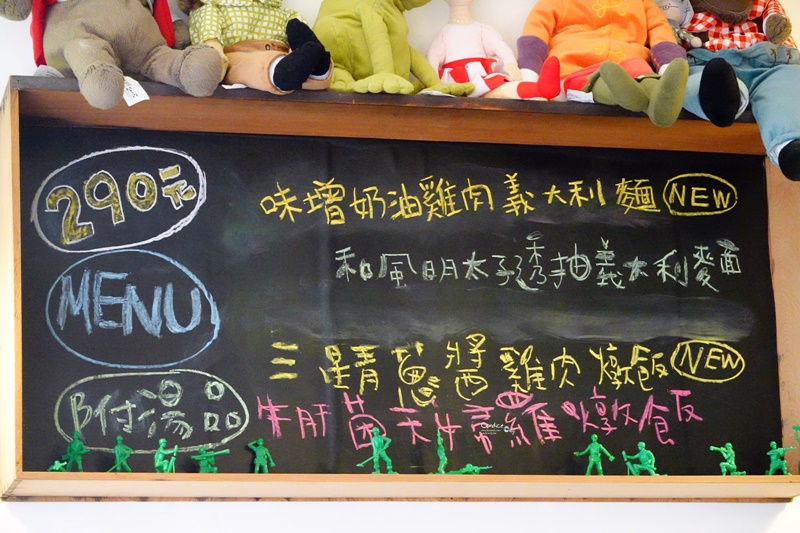 290元
味增奶油雞肉義大利麵 NEW
和風明太子透抽義大利麵
MENU
三星青蔥醬雞肉燉飯 NEW
附湯品
牛肝菌天使雞燉飯